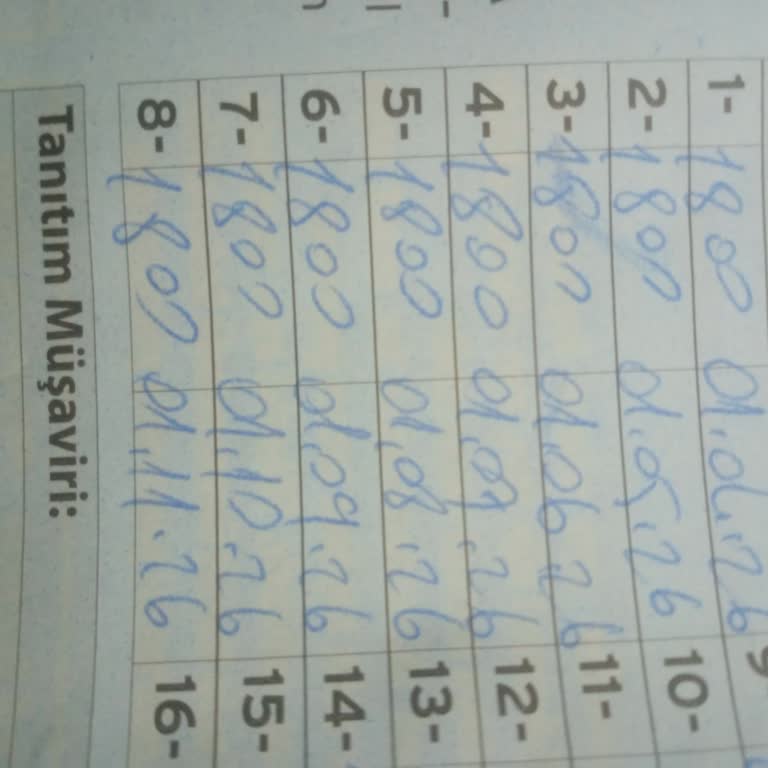 1- 1800 01.04.26 9
2- 1800 01.05.26 10-
3- 1800 01.06.26 11-
4- 1800 01.07.26 12-
5- 1800 01.08.26 13-
6- 1800 01.09.26 14-
7- 1800 01.10.26 15-
8- 1800 01.11.26 16-
Tanıtım Müşaviri: